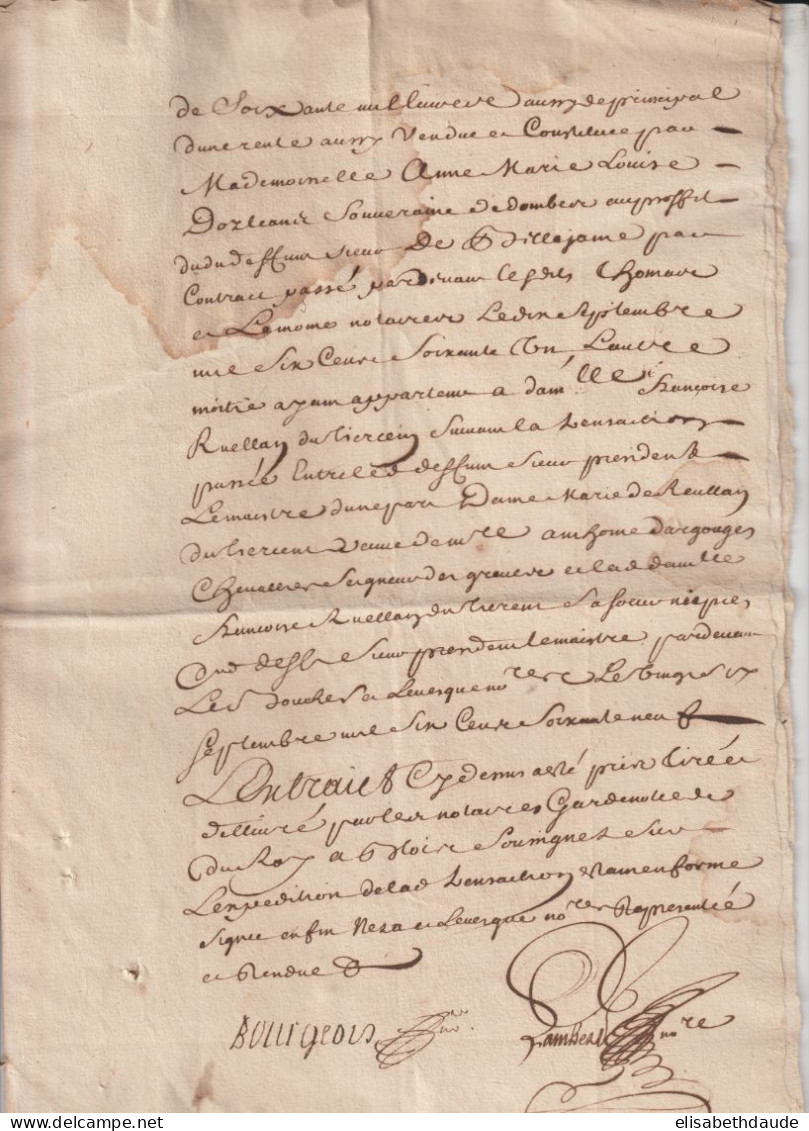 de Soixante mil livres aussy de principal
dune rente aussy Vendue et Constituée par
Mademoiselle Anne Marie Louise
Dorleans Souveraine de dombes au proffit
dudit deffunt sieur De par
Contract passé pardevant lesdits Thomas
et Lemoine notaires Le dix Septembre
mil Six Cens Soixante Un Lautre
moitié ayant appartenu a dam.lle françoise
Ruellan du tiercein suivant la transaction
passée Entre led deffunt sieur president
Lemaistre dune part Dame Marie de Ruellan
du tiercent veuve de m.re anthoine dargouges
Chevallier Seigneur des greves et lad dam.lle
françoise Ruellan du tiercent Sa soeur niepces
dud deff. sieur president lemaistre pardevant
Les d. Levesque no.res Le Vingt Six
Septembre mil Six Cens Soixante neuf
LExtraict Cy dessus a esté pris tiré et
dellivré par les notaires Gardenotte
du Roy a Soussignez sur
Lexpedition de lad transaction Estant en forme
signée en fin et Levesque no.res Representée
et Rendue
Bourgeois
no.re
elisabethdaude